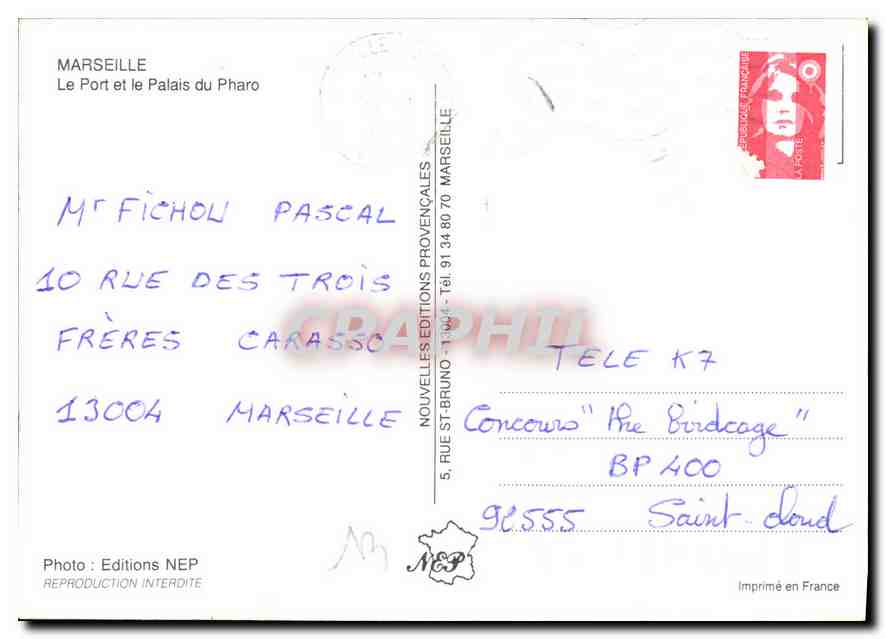 MARSEILLE
Le Port et le Palais du Pharo
Mr FICHOU PASCAL
10 RUE DES TROIS
FRÈRES CARASSO
13004 MARSEILLE
Photo : Editions NEP
REPRODUCTION INTERDITE
NOUVELLES EDITIONS PROVENÇALES
5, RUE ST-BRUNO - 13004 - Tél. 91 34 80 70 MARSEILLE
NEP
CRAPHIL
RÉPUBLIQUE FRANÇAISE
LA POSTE
TELE K7
Concours "the birdcage"
BP 400
92555 Saint-Cloud
Imprimé en France